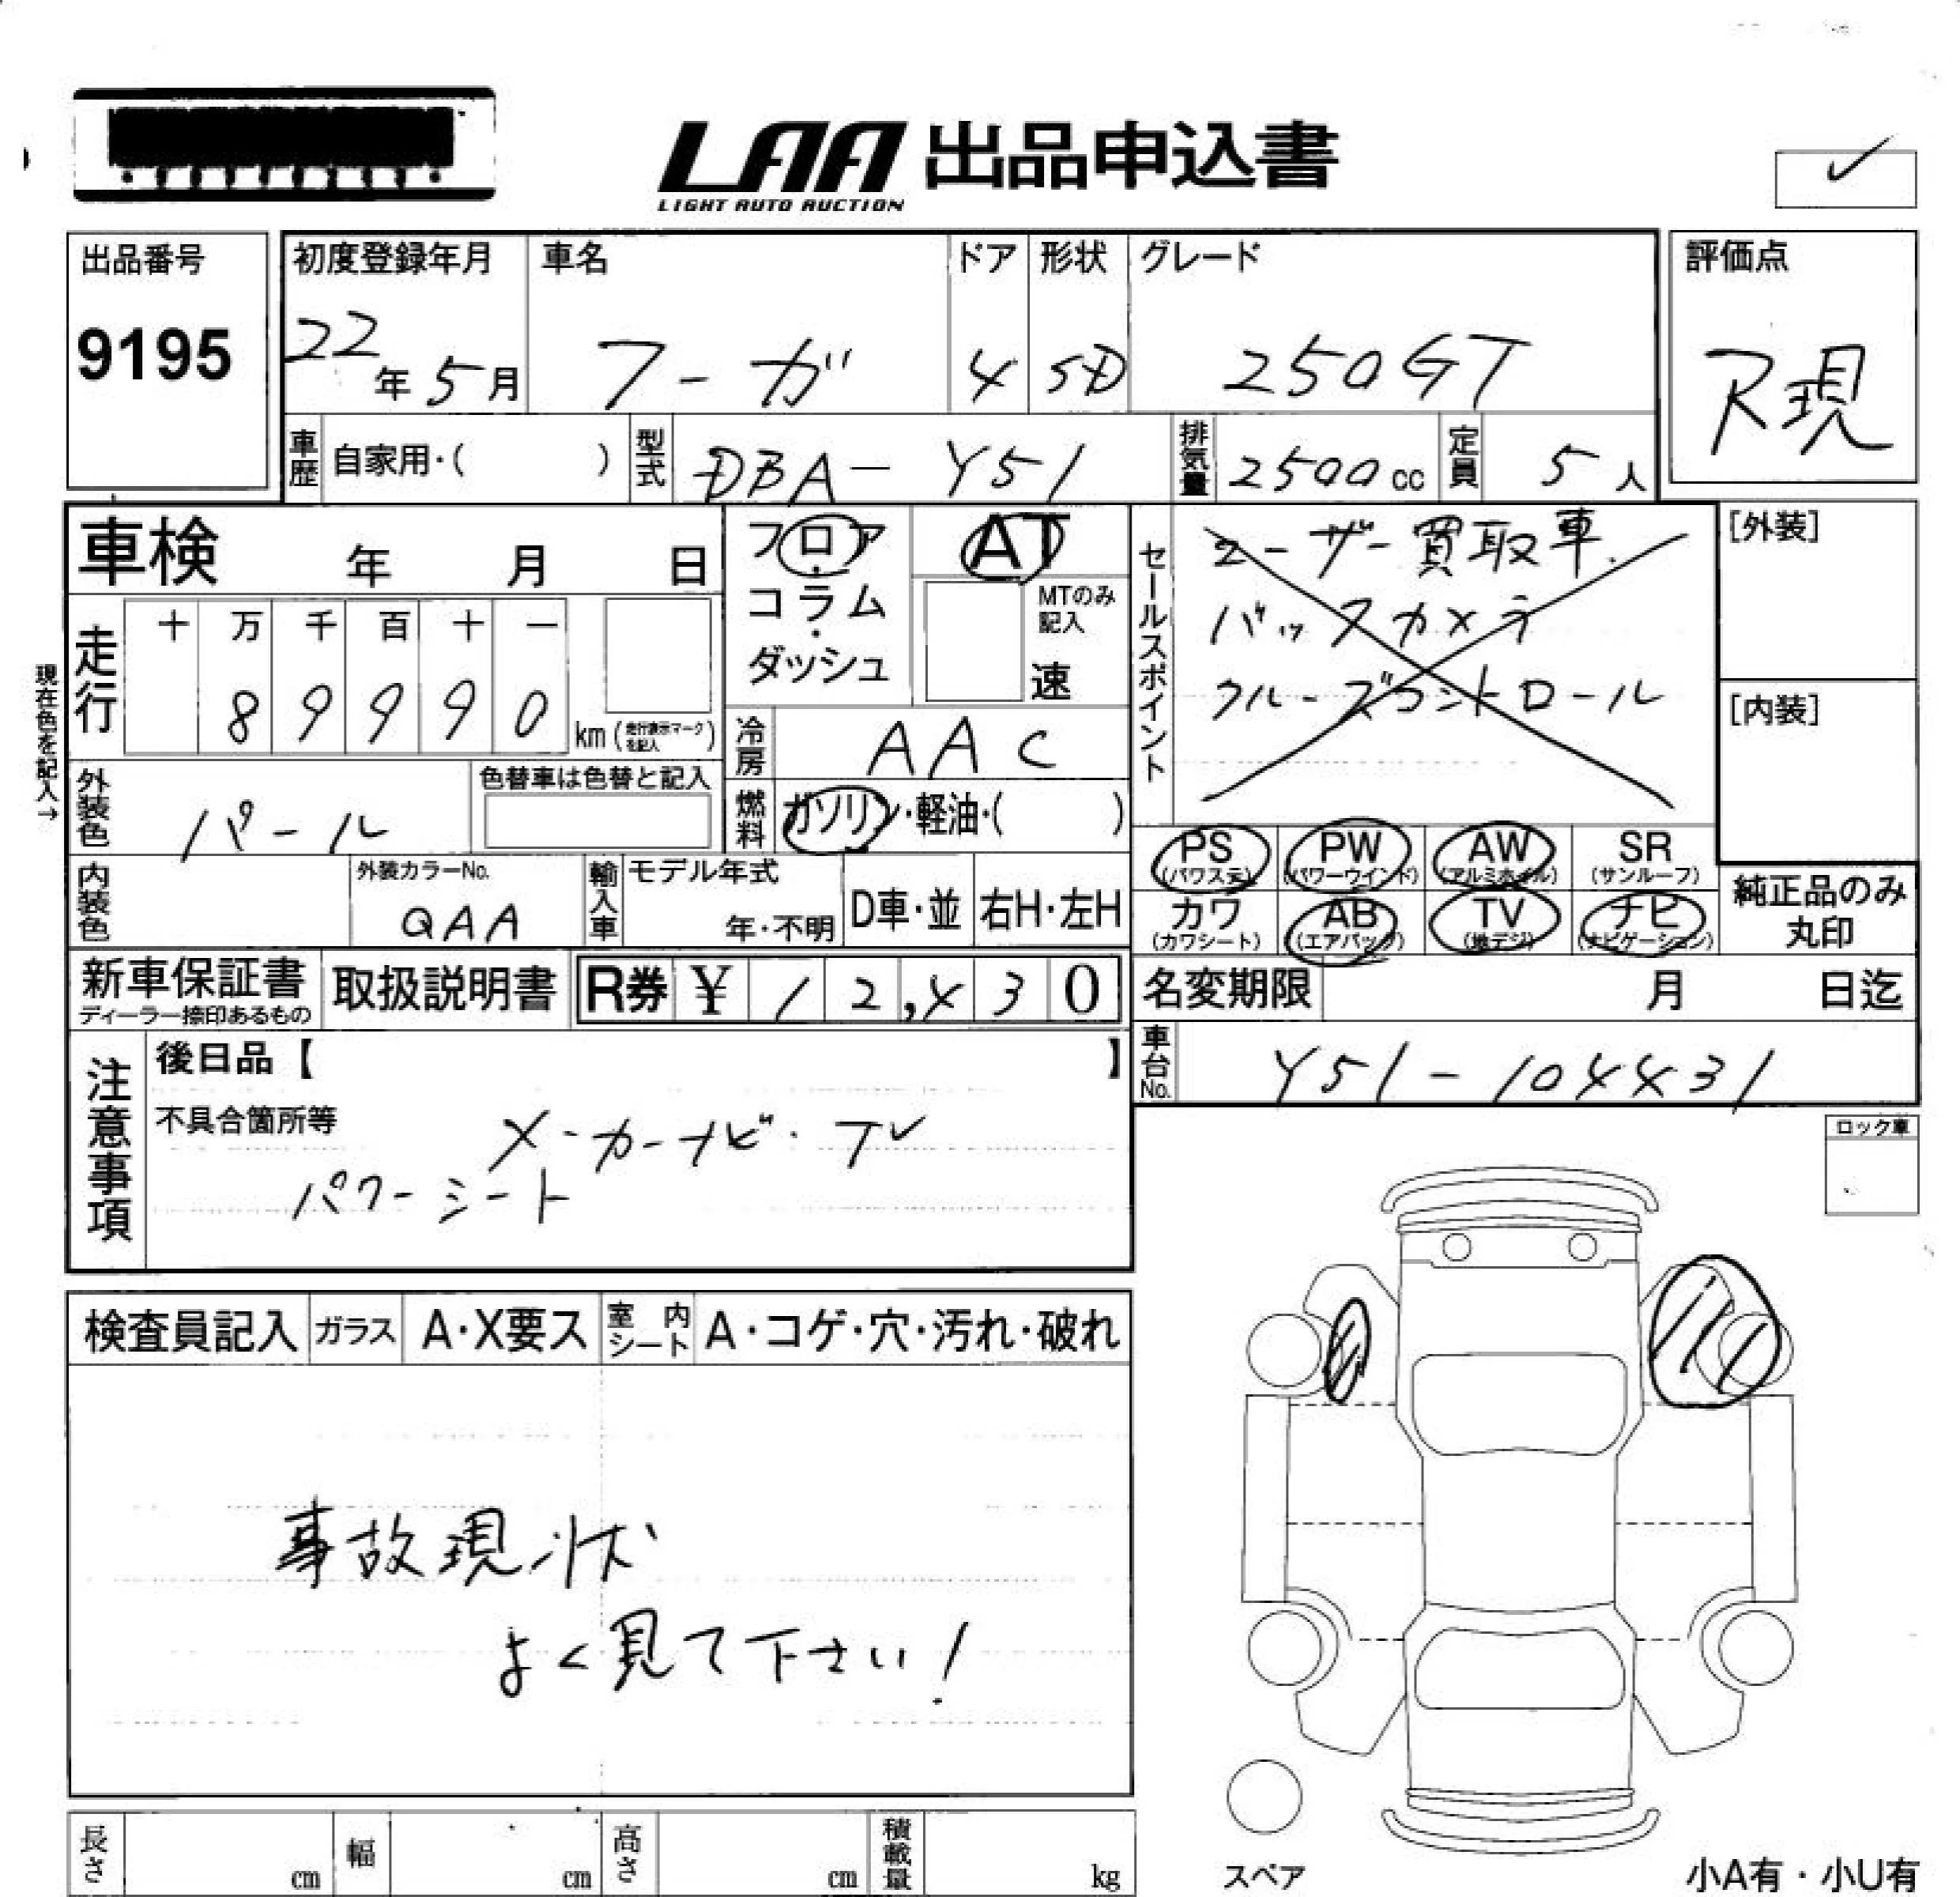 LAA 出品申込書
LIGHT AUTO AUCTION
出品番号
9195
初度登録年月
22年5月
車名
フーガ
ドア
4
形状
SD
グレード
250GT
評価点
R現
車歴 自家用・( )
型式 DBA-Y51
排気量 2500cc
定員 5人
車検 年 月 日
走行
十 万 千 百 十 一
8 9 9 9 0 km(走行表示マークを記入)
現在色を記入→
外装色 パール
色替車は色替と記入
内装色
外装カラーNo.
QAA
輸入車
モデル年式
年・不明
D車・並
右H・左H
フロア・コラム・ダッシュ
AT
MTのみ記入
速
冷房 AAC
燃料 ガソリン・軽油・( )
セールスポイント
ユーザー買取車.
バックカメラ
クルーズコントロール
[外装]
[内装]
PS(パワステ)
PW(パワーウインド)
AW(アルミホイル)
SR(サンルーフ)
カワ(カワシート)
AB(エアバッグ)
TV(地デジ)
ナビ(ナビゲーション)
純正品のみ丸印
新車保証書
ディーラー捺印あるもの
取扱説明書
R券 ¥ 12,430
名変期限 月 日迄
車台No. Y51-104431
注意事項
後日品【 】
不具合箇所等
メーカーナビ・TV
パワーシート
ロック車
検査員記入
ガラス A・X要ス
室内シート A・コゲ・穴・汚れ・破れ
事故現状
よく見て下さい!
長さ cm
幅 cm
高さ cm
積載量 kg
スペア
小A有・小U有